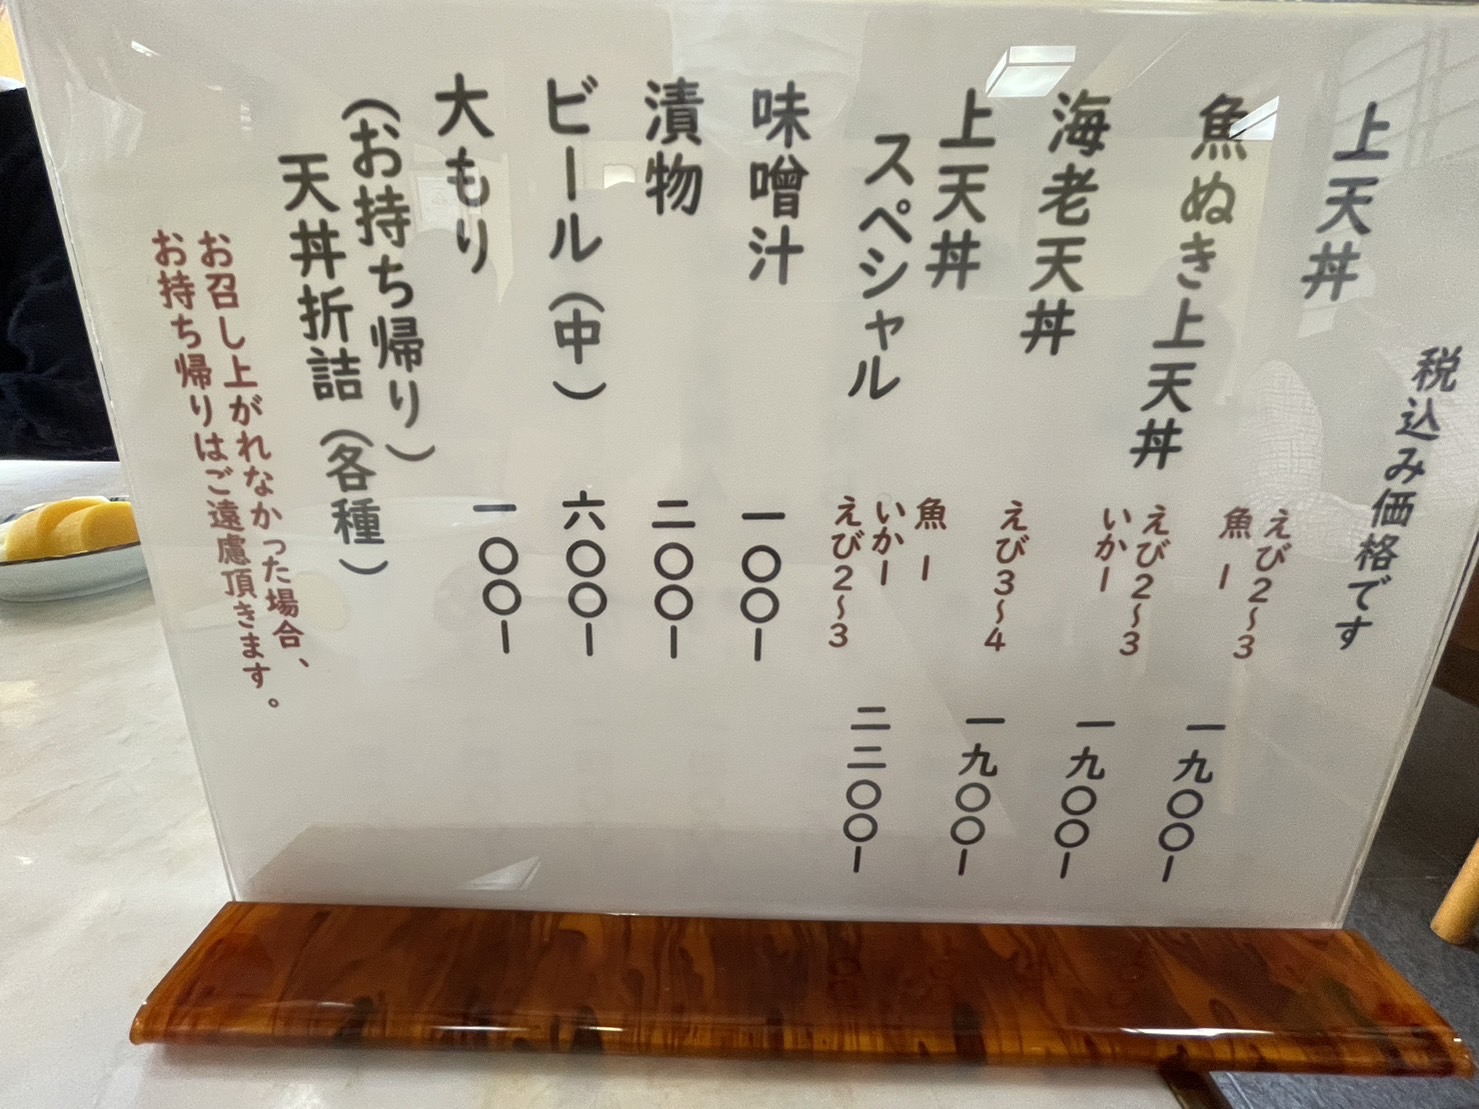 税込み価格です
上天丼
えび2〜3
魚 1
一九〇〇ー
魚ぬき上天丼
えび2〜3
いかー
一九〇〇ー
海老天丼
えび3〜4
一九〇〇ー
上天丼
スペシャル
魚 1
いかー
えび2〜3
二二〇〇ー
味噌汁
一〇〇ー
漬物
二〇〇ー
ビール(中)
六〇〇ー
大もり
一〇〇ー
(お持ち帰り)
天丼折詰(各種)
お召し上がれなかった場合、
お持ち帰りはご遠慮頂きます。